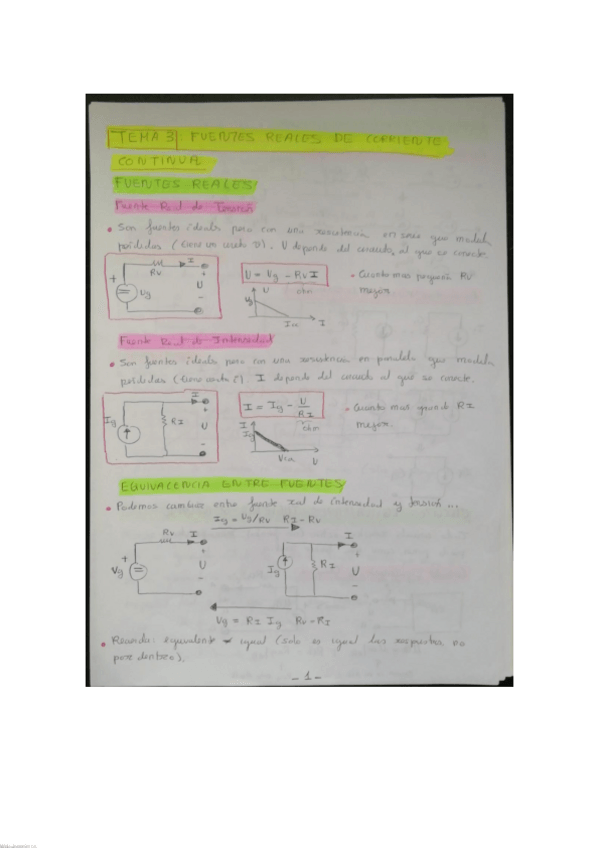 TEMA 3: FUENTES REALES DE CORRIENTE
CONTINUA
FUENTES REALES
Fuente Real de Tensión
• Son fuentes ideales pero con una resistencia en serie que modela
pérdidas (tiene un cierto). U depende del circuito al que se conecte.
+ Rv I + Ug U -
U = Ug - Rv I
ohm
U Ug I
• Cuanto mas pequeña Rv
mejor.
Fuente Real de Intensidad
• Son fuentes ideales pero con una resistencia en paralelo que modela
pérdidas (tiene cierto) I depende del circuito al que se conecte.
Ig RI I + U -
I = Ig - U/RI
ohm
I Ig U
• Cuanto mas grande RI
mejor.
EQUIVALENCIA ENTRE FUENTES
• Podemos cambiar entre fuente real de intensidad y tensión...
Ig = Ug/Rv RI = Rv
+ Vg Rv I + U -
Ig RI I + U -
Vg = RI Ig Rv = RI
• Recuerda: equivalente ≠ igual (solo es igual las respuestas no
por dentro).
- 1 -